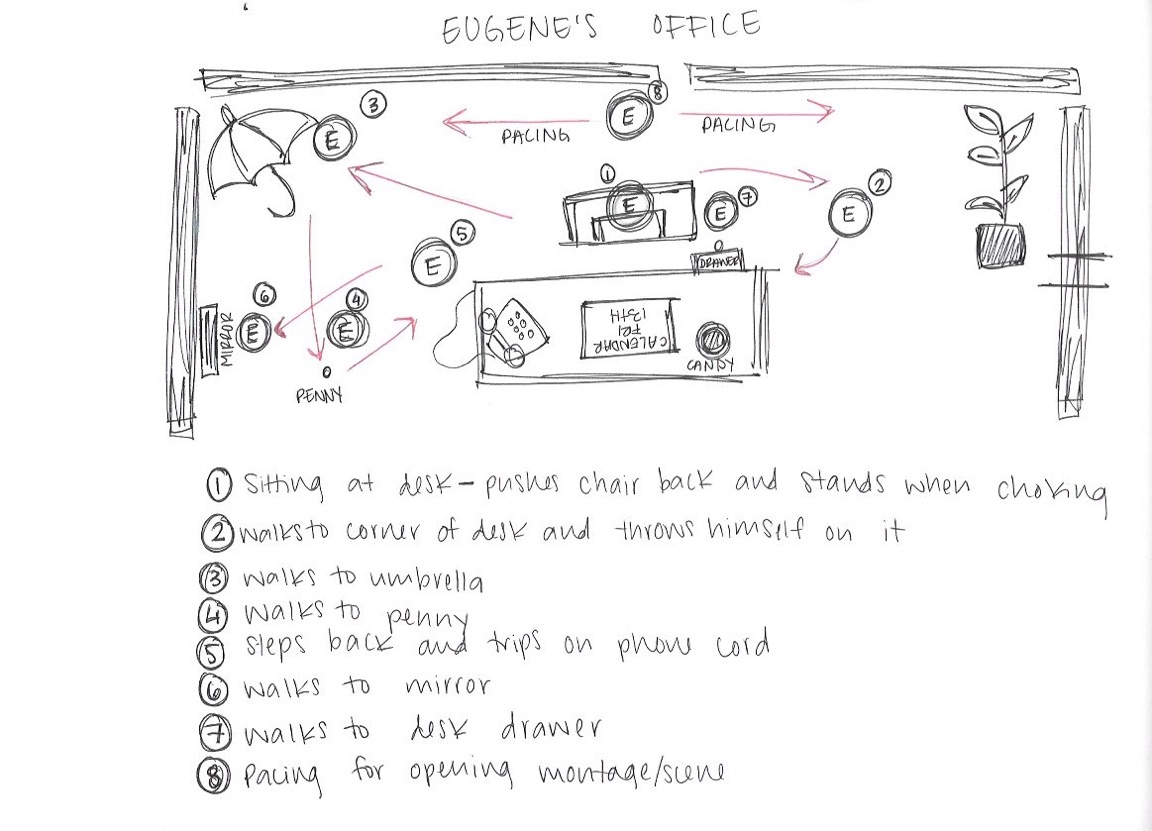 EUGENE'S OFFICE
3
8
E
E
PACING
PACING
1
2
E
7
E
E
5
E
DRAWER
6
4
MIRROR
E
E
CALENDAR
FRI
13TH
CANDY
PENNY
1 Sitting at desk - pushes chair back and stands when choking
2 walks to corner of desk and throws himself on it
3 walks to umbrella
4 walks to penny
5 steps back and trips on phone cord
6 walks to mirror
7 walks to desk drawer
8 Pacing for opening montage/scene